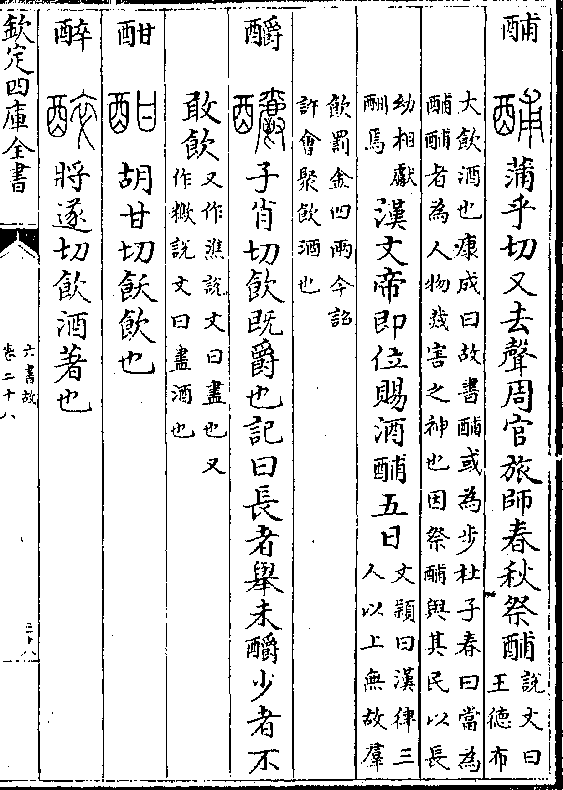 酺 蒲乎切又去聲周官旅師春秋祭酺說文曰王德布
大飲酒也康成曰故書酺或為步杜子春曰當為
酺酺者為人物烖害之神也因祭酺與其民以長
幼相獻酬焉漢文帝即位賜酒酺五日文穎曰漢律三人以上無故羣
飲罰金四兩今詔
許會聚飲酒也
釂 子肖切飲既爵也記曰長者舉未釂少者不
敢飲又作潐說文曰盡也又作說文曰盡酒也
酣 胡甘切飫飲也
醉 將遂切飲酒著也
欽定四庫全書
六書故
卷二十八